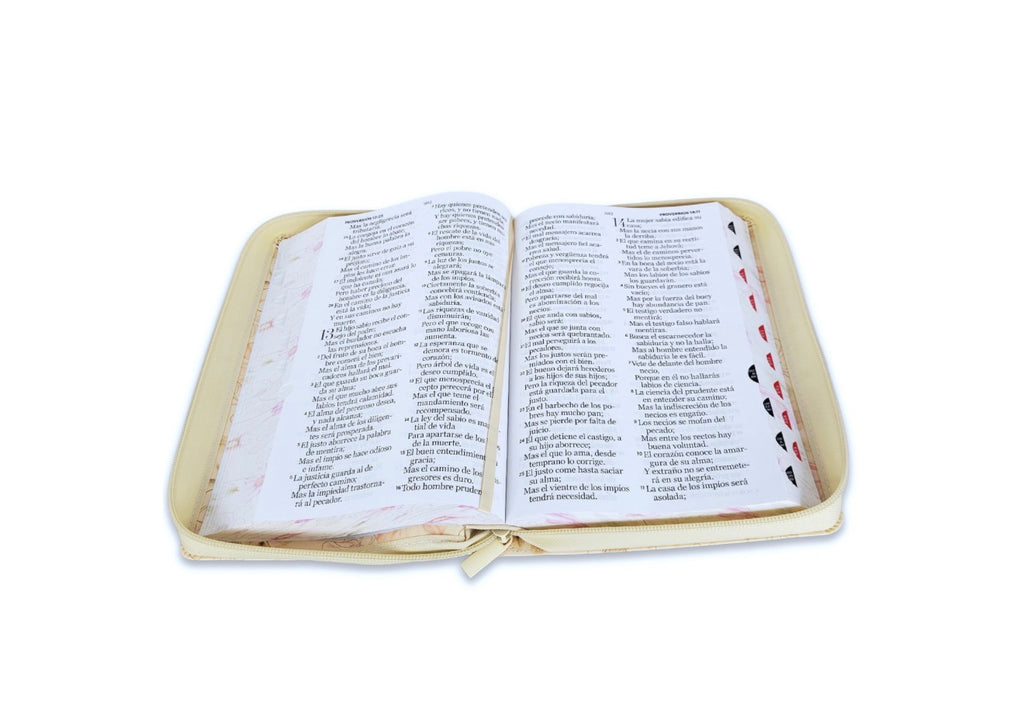 PROVERBIOS 12:25
Mas la negligencia será
tributaria.
La congoja en el corazón
del hombre lo abate;
Mas la buena palabra lo
alegra.
El justo sirve de guía a su
prójimo;
Mas el camino de los im-
píos les hace errar.
El indolente ni aun asará lo
que ha cazado;
Pero haber precioso del
hombre es la diligencia.
En el camino de la justicia
está la vida;
Y en sus caminos no hay
muerte.
13 El hijo sabio recibe el con-
sejo del padre;
Mas el burlador no escucha
las reprensiones.
Del fruto de su boca el hom-
bre comerá el bien;
Mas el alma de los prevari-
cadores hallará el mal.
3 El que guarda su boca guar-
da su alma;
Mas el que mucho abre sus
labios tendrá calamidad.
4 El alma del perezoso desea,
y nada alcanza;
Mas el alma de los diligen-
tes será prosperada.
5 El justo aborrece la palabra
de mentira;
Mas el impío se hace odioso
e infame.
6 La justicia guarda al de
perfecto camino;
Mas la impiedad trastorna-
rá al pecador.
7 Hay quienes pretenden ser
ricos, y no tienen nada;
Y hay quienes pretenden
ser pobres, y tienen mu-
chas riquezas.
8 El rescate de la vida del
hombre está en sus
riquezas;
Pero el pobre no oye
censuras.
9 La luz de los justos se
alegrará;
Mas se apagará la lámpara
de los impíos.
10 Ciertamente la soberbia
concebirá contienda;
Mas con los avisados está
sabiduría.
11 Las riquezas de vanidad
disminuirán;
Pero el que recoge con
mano laboriosa las
aumenta.
12 La esperanza que se
demora es tormento de
corazón;
Pero árbol de vida es
deseo cumplido.
13 El que menosprecia el
cepto perecerá por él
Mas el que teme el
mandamiento será
recompensado.
14 La ley del sabio es ma
tial de vida
Para apartarse de los
de la muerte.
15 El buen entendimient
gracia;
Mas el camino de los
gresores es duro.
16 Todo hombre pruden
procede con sabiduría;
Mas el necio manifestará
necedad.
El mal mensajero acarrea
desgracia;
Mas el mensajero fiel aca-
rrea salud.
Pobreza y vergüenza tendrá
el que menosprecia el
consejo;
Mas el que guarda la co-
rrección recibirá honra.
El deseo cumplido regocija
el alma;
Pero apartarse del mal
es abominación a los
necios.
20 El que anda con sabios,
sabio será;
Mas el que se junta con
necios será quebrantado.
21 El mal perseguirá a los
pecadores,
Mas los justos serán pre-
miados con el bien.
22 El bueno dejará herederos
a los hijos de sus hijos;
Pero la riqueza del pecador
está guardada para el
justo.
23 En el barbecho de los po-
bres hay mucho pan;
Mas se pierde por falta de
juicio.
24 El que detiene el castigo, a
su hijo aborrece;
Mas el que lo ama, desde
temprano lo corrige.
25 El justo come hasta saciar
su alma;
Mas el vientre de los impíos
tendrá necesidad.
PROVERBIOS 14:11
14 La mujer sabia edifica su
casa;
Mas la necia con sus manos
la derriba.
2 El que camina en su recti-
tud teme a Jehová;
Mas el de caminos perver-
tidos lo menosprecia.
3 En la boca del necio está la
vara de la soberbia;
Mas los labios de los sabios
los guardarán.
4 Sin bueyes el granero está
vacío;
Mas por la fuerza del buey
hay abundancia de pan.
5 El testigo verdadero no
mentirá;
Mas el testigo falso hablará
mentiras.
6 Busca el escarnecedor la
sabiduría y no la halla;
Mas al hombre entendido la
sabiduría le es fácil.
7 Vete de delante del hombre
necio,
Porque en él no hallarás
labios de ciencia.
8 La ciencia del prudente está
en entender su camino;
Mas la indiscreción de los
necios es engaño.
9 Los necios se mofan del
pecado;
Mas entre los rectos hay
buena voluntad.
10 El corazón conoce la amar-
gura de su alma;
Y extraño no se entremete-
rá en su alegría.
11 La casa de los impíos será
asolada;